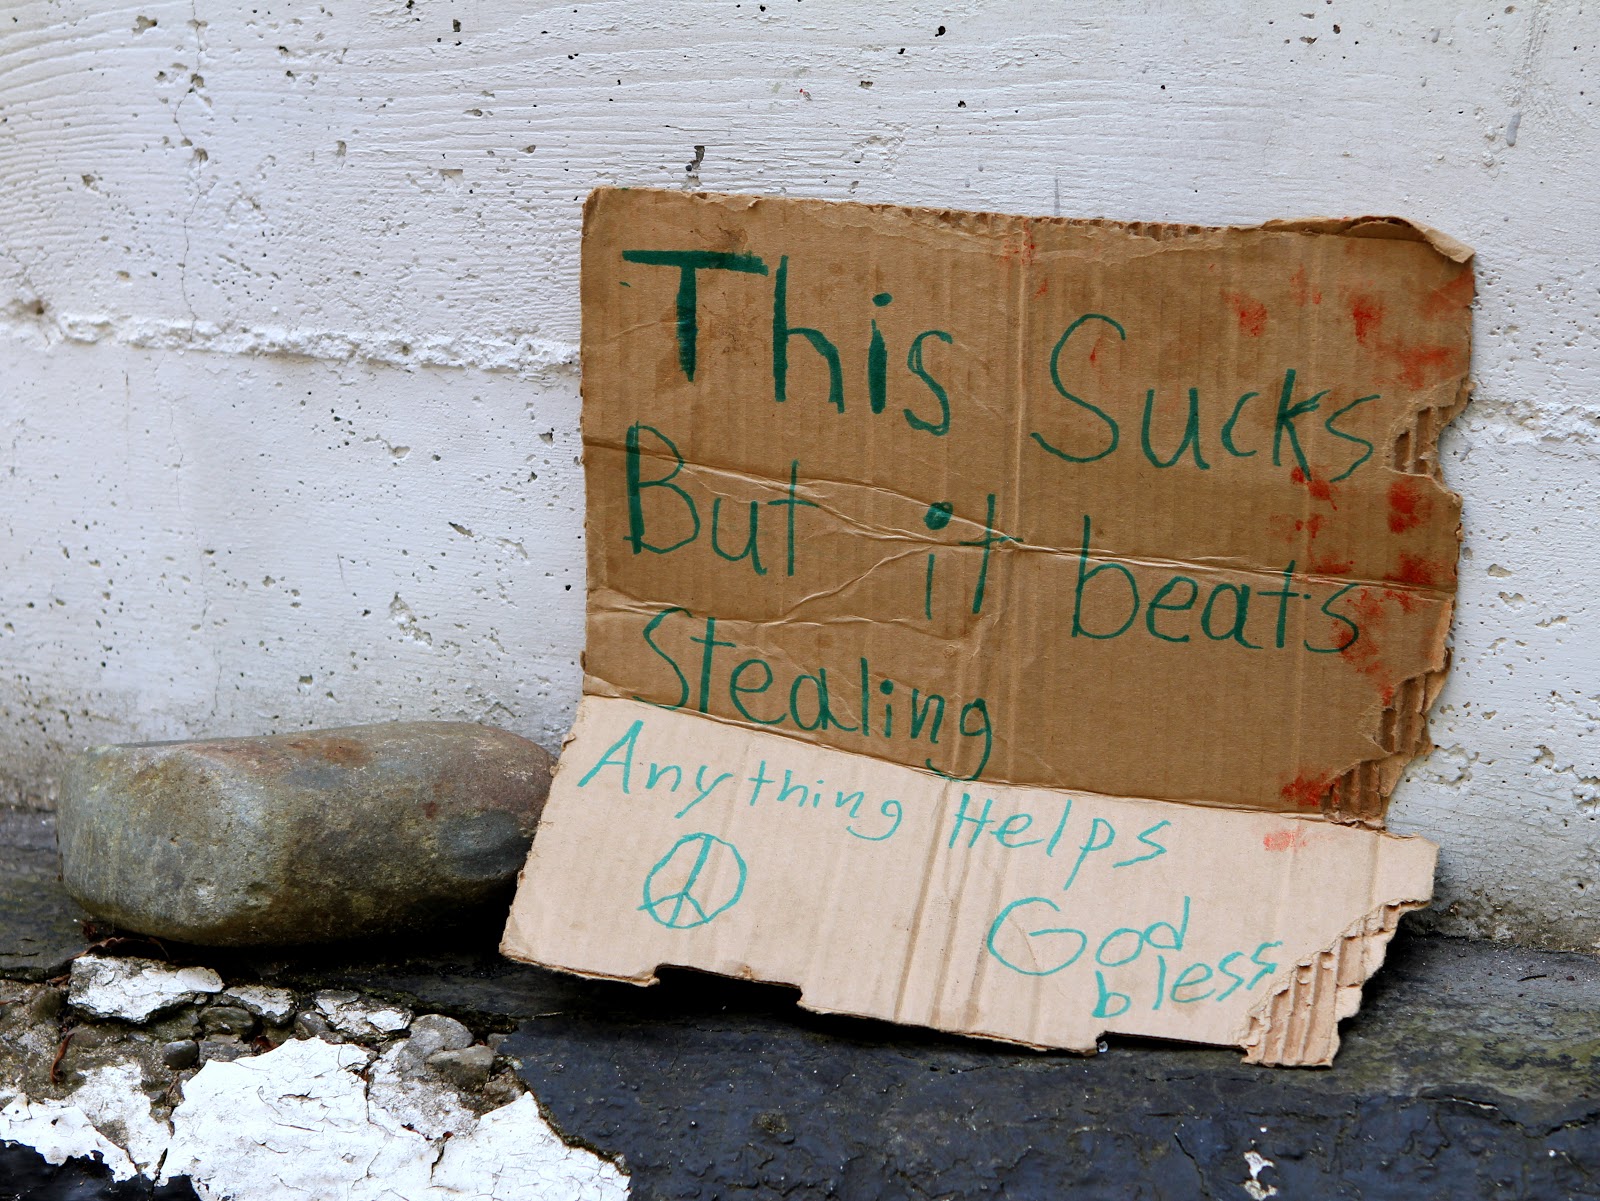 This Sucks
But it beats
Stealing
Anything Helps
God
bless